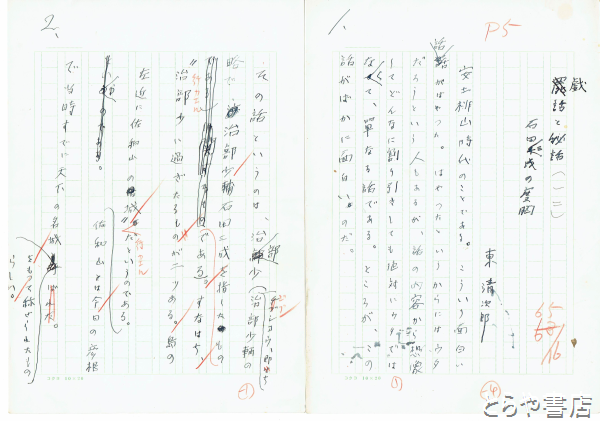 1、
P5
戯
戯話と秘話（一二）
石田三成の度胸
東 清次郎
安土桃山時代のことである。こういう面白い
話がはやった。はやったというからにはウタ
だろうという人もあるが、話の内容から想像
してどんなに割り引きしても絶対にウタでは
なくて、単なる話である。ところが、この
話がばかに面白いのだ。
65
16
2、
その話というのは、治部少（治部少輔の
略だ 治部少輔石田三成を指したもの
である。すなはち、
治部少に過ぎたるものが二つある。島の
左近に佐和山の城だというのである。
佐和山とは今日の彦根
で当時すでに天下の名城
をもって称せられたもの
らしい。
とらや書店